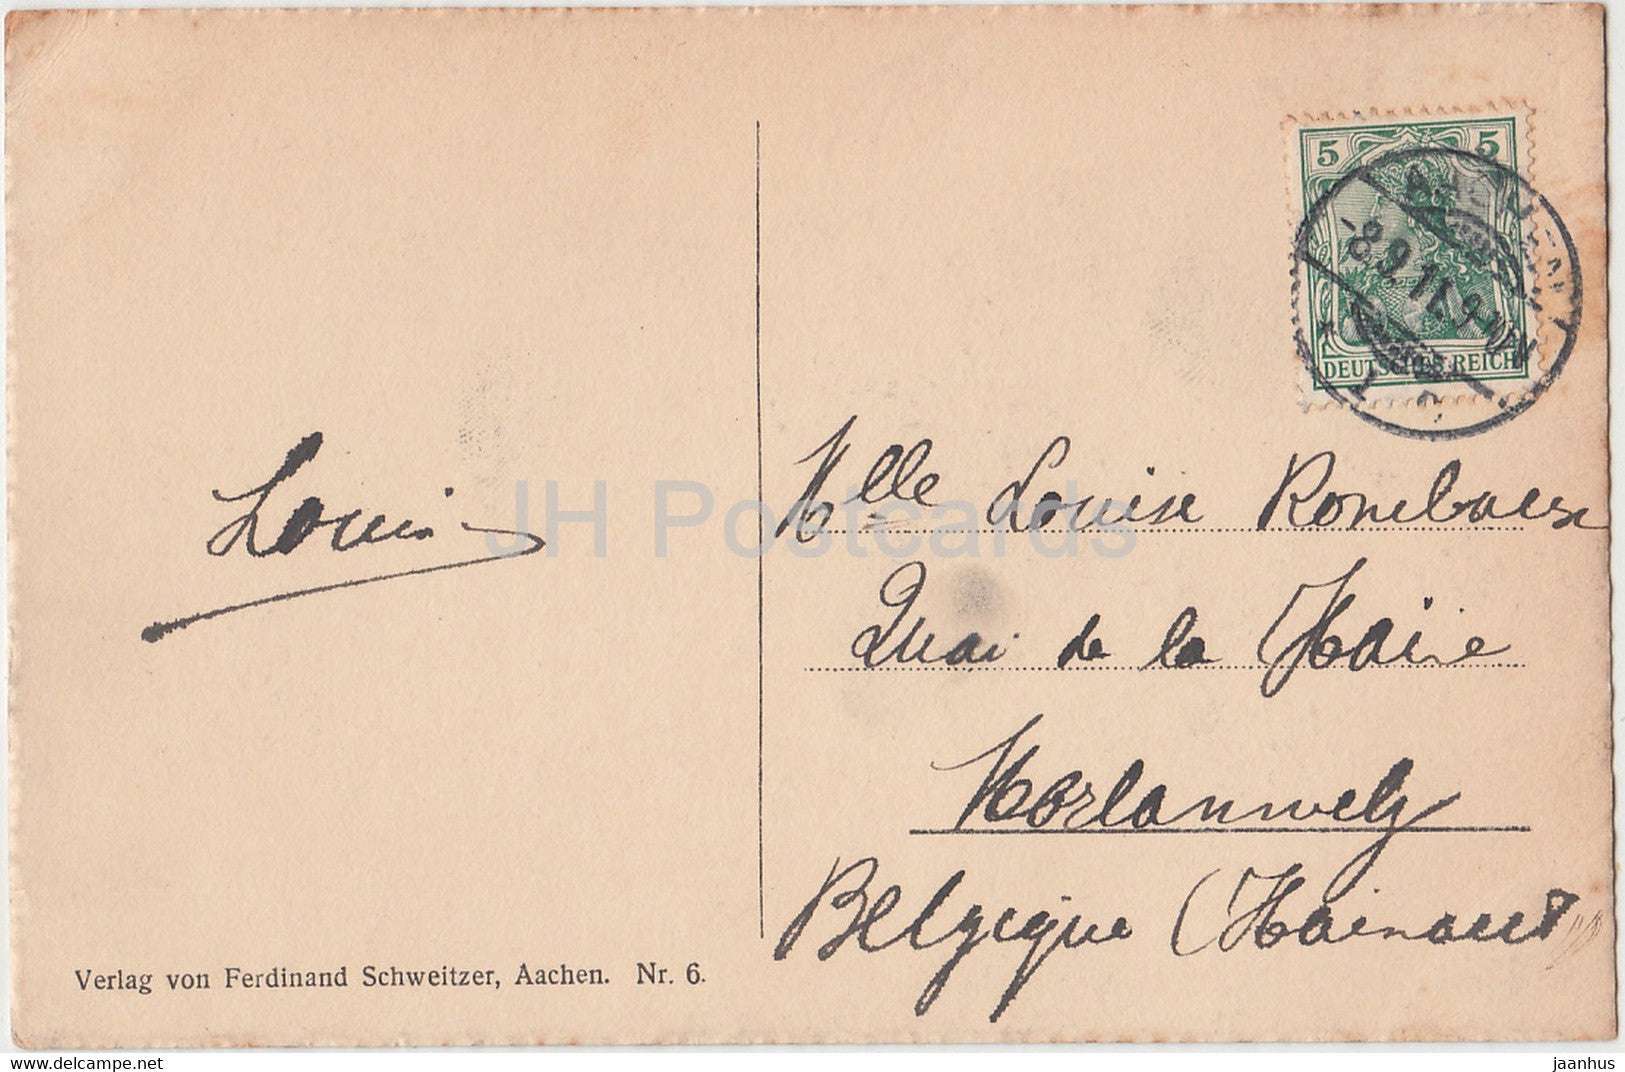 5 5
AACHEN
-8.9.11.9-10V
* 1 c.
DEUTSCHES REICH
Louis
Mlle Louise Rombaux
Quai de la Haine
Morlanwelz
Belgique (Hainaut)
Verlag von Ferdinand Schweitzer, Aachen. Nr. 6.
JH Postcards
delcampe.net
jaanhus